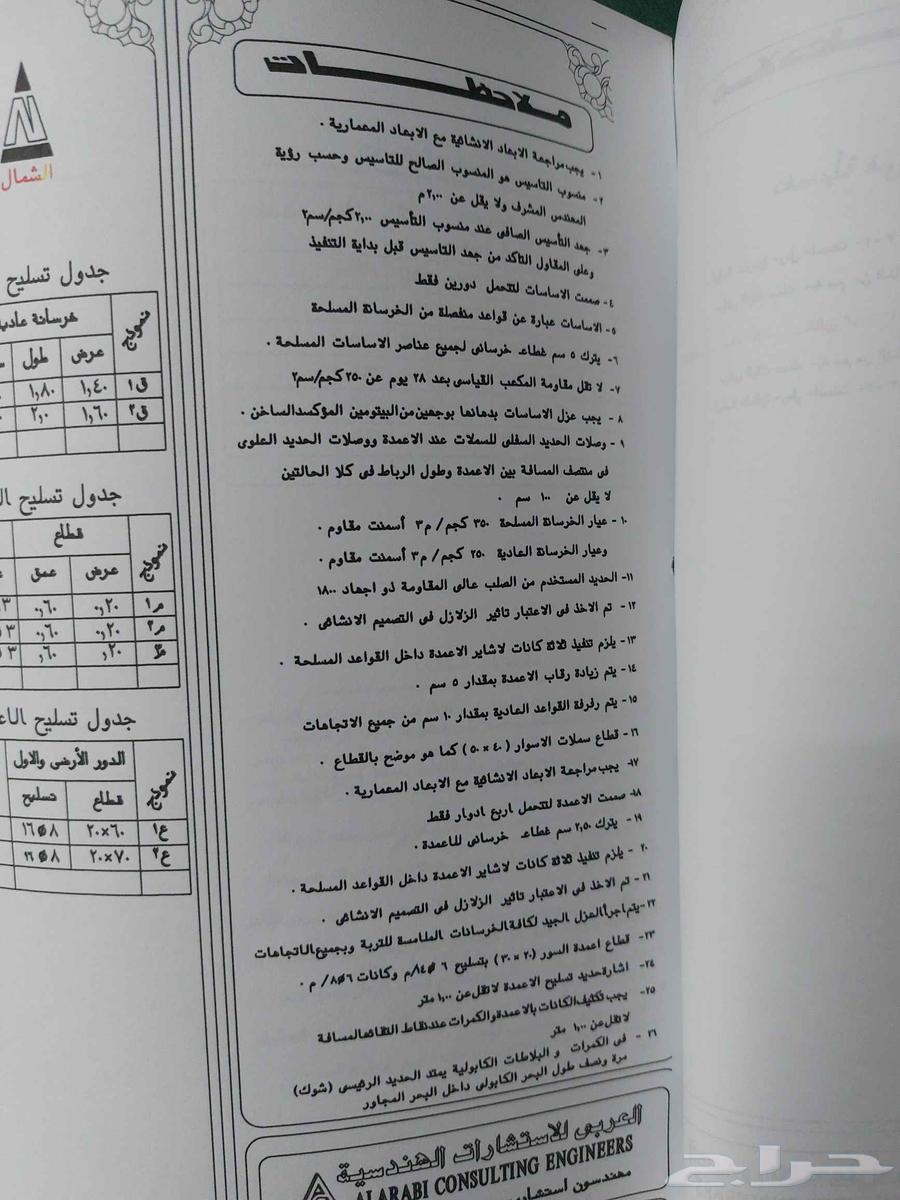 ملاحظـــات
١- يجب مراجعة الابعاد الانشائية مع الابعاد المعمارية .
٢- منسوب التاسيس هو المنسوب الصالح للتاسيس وحسب رؤية
المهندس المشرف ولا يقل عن ٢,٠٠ م
٣- جهد التأسيس الصافى عند منسوب التأسيس ٢,٠٠ كجم/سم٢
وعلى المقاول التاكد من جهد التاسيس قبل بداية التنفيذ
٤- صممت الاساسات لتتحمل دورين فقط
٥- الاساسات عبارة عن قواعد منفصلة من الخرسانة المسلحة
٦- يترك ٥ سم غطاء خرسانى لجميع عناصر الاساسات المسلحة .
٧- لا تقل مقاومة المكعب القياسى بعد ٢٨ يوم عن ٢٥٠ كجم/سم٢
٨- يجب عزل الاساسات بدهانها بوجهين من البيتومين المؤكسد الساخن .
٩- وصلات الحديد السفلى للسملات عند الاعمدة ووصلات الحديد العلوى
فى منتصف المسافة بين الاعمدة وطول الرباط فى كلا الحالتين
لا يقل عن ١٠٠ سم .
١٠- عيار الخرسانة المسلحة ٣٥٠ كجم/ م٣ أسمنت مقاوم .
وعيار الخرسانة العادية ٢٥٠ كجم/ م٣ أسمنت مقاوم .
١١- الحديد المستخدم من الصلب عالى المقاومة ذو اجهاد ١٨٠٠
١٢- تم الاخذ فى الاعتبار تاثير الزلازل فى التصميم الانشائى .
١٣- يلزم تنفيذ ثلاثة كانات لاشاير الاعمدة داخل القواعد المسلحة .
١٤- يتم زيادة رقاب الاعمدة بمقدار ٥ سم .
١٥- يتم رفرفة القواعد العادية بمقدار ١٠ سم من جميع الاتجاهات
١٦- قطاع سملات الاسوار ( ٤٠ × ٥٠ ) كما هو موضح بالقطاع .
١٧- يجب مراجعة الابعاد الانشائية مع الابعاد المعمارية .
١٨- صممت الاعمدة لتتحمل اربع ادوار فقط
١٩- يترك ٢,٥٠ سم غطاء خرسانى للاعمدة .
٢٠- يلزم تنفيذ ثلاثة كانات لاشاير الاعمدة داخل القواعد المسلحة .
٢١- تم الاخذ فى الاعتبار تاثير الزلازل فى التصميم الانشائى .
٢٢- يتم اجراء العزل الجيد لكافة الخرسانات الملامسة للتربة وبجميع الاتجاهات
٢٣- قطاع اعمدة السور ( ٢٠ × ٣٠ ) بتسليح ٦ Ø ١٤/م وكانات ٦ Ø ٨/ م .
٢٤- اشارة حديد تسليح الاعمدة لا تقل عن ١,٠٠ متر
٢٥- يجب تكثيف الكانات بالاعمدة والكمرات عند نقاط التقائها لمسافة
لا تقل عن ١,٠٠ متر
٢٦- فى الكمرات و البلاطات الكابولية يمتد الحديد الرئيسى (شوك)
مرة ونصف طول البحر الكابولى داخل البحر المجاور
العربى للاستشارات الهندسية
AL ARABI CONSULTING ENGINEERS
مهندسون
الشمال
جدول تسليح
نموذج
خرسانة عادية
عرض طول
ق١ ١,٤٠ ١,٨٠
ق٢ ١,٦٠ ٢,٠٠
جدول تسليح
نموذج
قطاع
عرض عمق
م١ ٠,٢٠ ٠,٦٠
م٢ ٠,٢٠ ٠,٦٠
م٣ ٠,٢٠ ٠,٦٠
جدول تسليح
نموذج
الدور الأرضى والاول
قطاع تسليح
ع١ ٢٠×٦٠ ٨ Ø ١٦
ع٢ ٢٠×٧٠ ٨ Ø ١٦
حراج